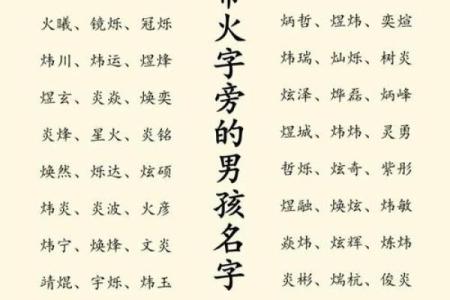 火曦、镜烁、冠烁
炜川、炜运、煜烽
煜玄、炎焱、焕奕
炎烽、星火、炎铭
焕然、烁达、炫硕
炜炎、炎波、火彦
炜宁、焕烽、文炎
靖焜、宇烁、炜玉
带火字旁的男孩名字
炳哲、煜炜、奕煊
炜瑞、灿烁、树炎
炫泽、烨磊、炳峰
煜城、炜炜、灵勇
哲烁、炫奇、紫彤
煜融、焕炫、炜敏
焱炜、炫辉、炼炜
炎彬、煓杭、俊炎